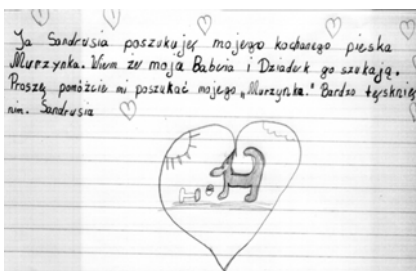 Ja Sandrusia poszukuję mojego kochanego pieska
Murzynka. Wiem że moja Babcia i Dziadek go szukają.
Proszę pomóżcie mi poszukać mojego „Murzynka.” Bardzo tęsknię
nim. Sandrusia